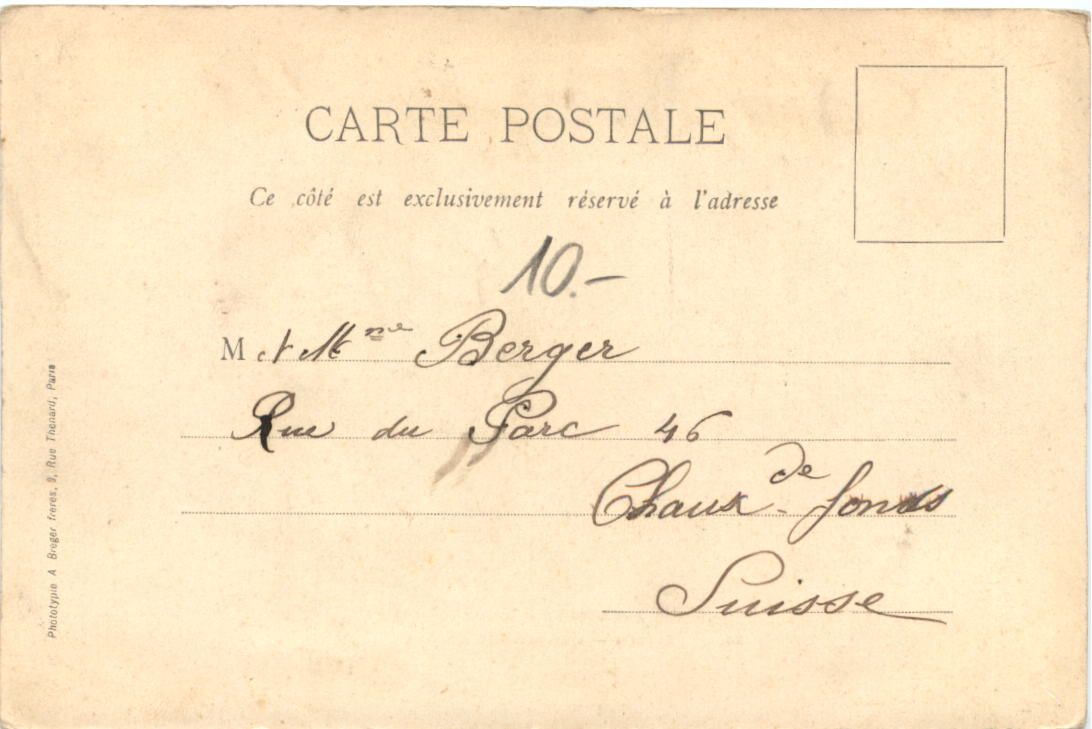 CARTE POSTALE
Ce côté est exclusivement réservé à l'adresse
10.-
M et Mme Berger
Rue du Parc 46
Chaux-de fonds
Suisse
Phototypie A Breger frères, 9, Rue Thénard, Paris